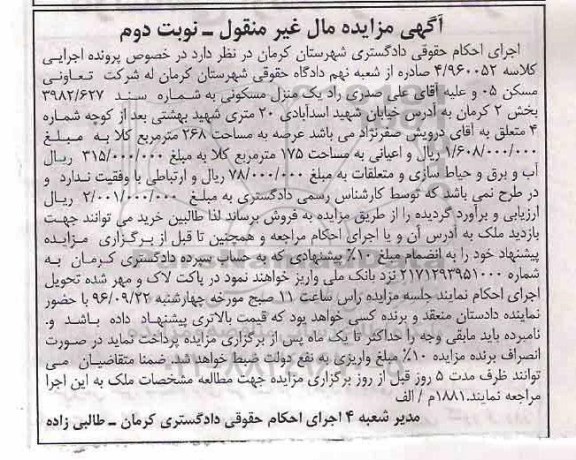 آگهی مزایده مال غیر منقول ــ نوبت دوم
اجرای احکام حقوقی دادگستری شهرستان کرمان در نظر دارد در خصوص پرونده اجرایی
کلاسه ۴/۹۶۰۰۵۲ صادره از شعبه نهم دادگاه حقوقی شهرستان کرمان له شرکت تعاونی
مسکن ۰۵ و علیه آقای علی صدری راد یک منزل مسکونی به شماره سند ۳۹۸۲/۶۲۷
بخش ۲ کرمان به آدرس خیابان شهید اسدآبادی ۲۰ متری شهید بهشتی بعد از کوچه شماره
۴ متعلق به آقای درویش صفرنژاد می باشد عرصه به مساحت ۲۶۸ مترمربع کلا به مبلغ
۱/۶۰۸/۰۰۰/۰۰۰ ریال و اعیانی به مساحت ۱۷۵ مترمربع کلا به مبلغ ۳۱۵/۰۰۰/۰۰۰ ریال
آب و برق و حیاط سازی و متعلقات به مبلغ ۷۸/۰۰۰/۰۰۰ ریال و ارتباطی با وقفیت ندارد و
در طرح نمی باشد که توسط کارشناس رسمی دادگستری به مبلغ ۲/۰۰۱/۰۰۰/۰۰۰ ریال
ارزیابی و برآورد گردیده را از طریق مزایده به فروش برساند لذا طالبین خرید می توانند جهت
بازدید ملک به آدرس آن و یا اجرای احکام مراجعه و همچنین تا قبل از برگزاری مزایده
پیشنهاد خود را به انضمام مبلغ ۱۰٪ پیشنهادی که به حساب سپرده دادگستری کرمان به
شماره ۲۱۷۱۲۹۳۹۵۱۰۰۰ نزد بانک ملی واریز خواهند نمود در پاکت لاک و مهر شده تحویل
اجرای احکام نمایند جلسه مزایده راس ساعت ۱۱ صبح مورخه چهارشنبه ۹۶/۰۹/۲۲ با حضور
نماینده دادستان منعقد و برنده کسی خواهد بود که قیمت بالاتری پیشنهاد داده باشد و
نامبرده باید مابقی وجه را حداکثر تا یک ماه پس از برگزاری مزایده پرداخت نماید در صورت
انصراف برنده مزایده ۱۰٪ مبلغ واریزی به نفع دولت ضبط خواهد شد. ضمنا متقاضیان می
توانند ظرف مدت ۵ روز قبل از روز برگزاری مزایده جهت مطالعه مشخصات ملک به این اجرا
مراجعه نمایند.۱۸۸۱م / الف
مدیر شعبه ۴ اجرای احکام حقوقی دادگستری کرمان ــ طالبی زاده